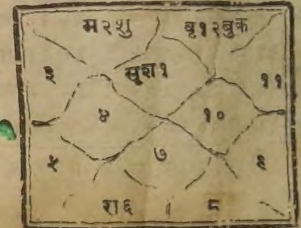 म२शु बृ१२बुक
३ सूश१ ११
४ १०
५ ७ ९
रा६ ८